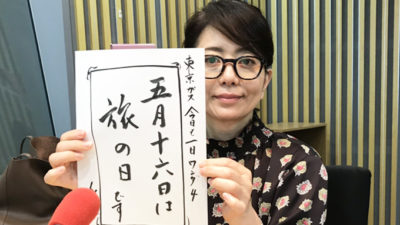 東京ガス 今日も一日ワンダ4
五月十六日は
旅の日
です